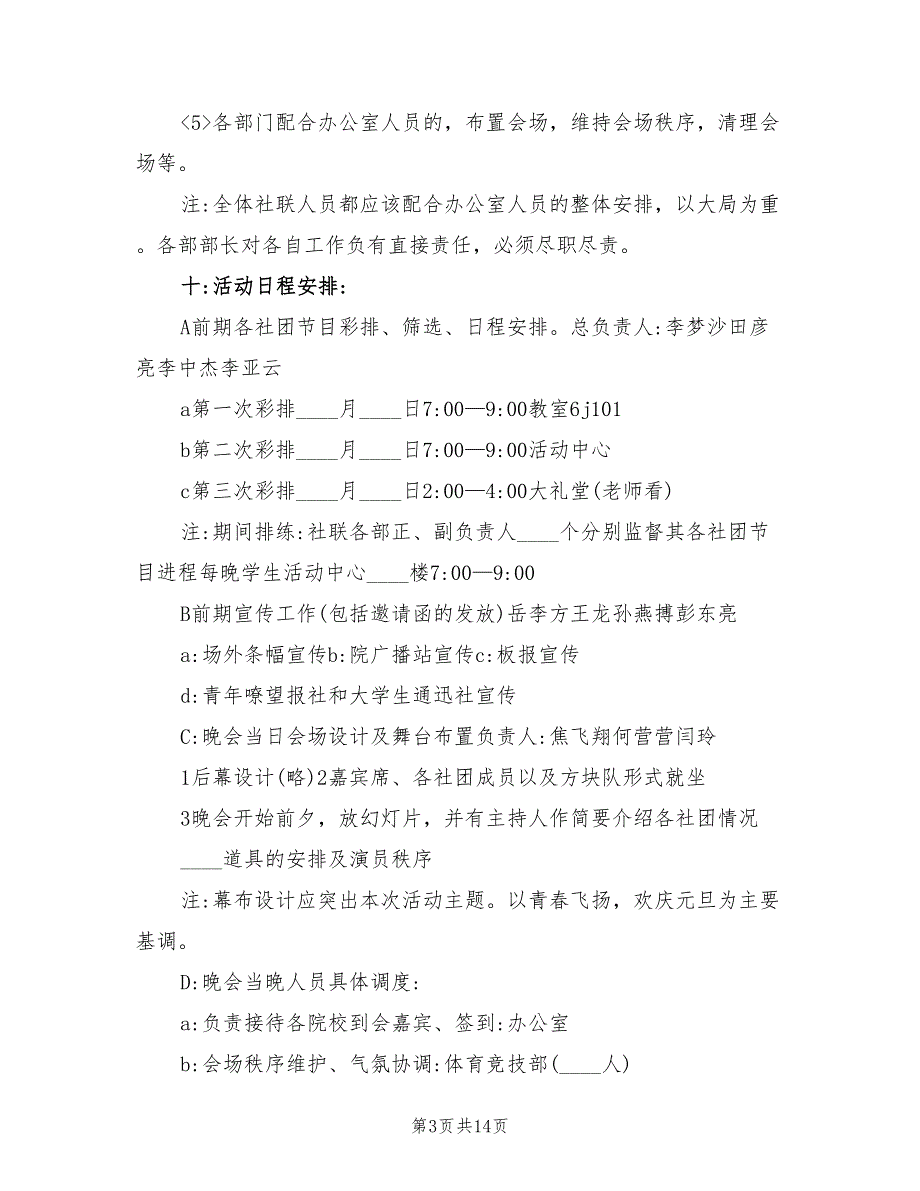 <5>各部门配合办公室人员的，布置会场，维持会场秩序，清理会
场等。
注:全体社联人员都应该配合办公室人员的整体安排，以大局为重
。各部部长对各自工作负有直接责任，必须尽职尽责。
十:活动日程安排:
A前期各社团节目彩排、筛选、日程安排。总负责人:李梦沙田彦
亮李中杰李亚云
a第一次彩排____月____日7:00—9:00教室6j101
b第二次彩排____月____日7:00—9:00活动中心
c第三次彩排____月____日2:00—4:00大礼堂(老师看)
注:期间排练:社联各部正、副负责人____个分别监督其各社团节
目进程每晚学生活动中心____楼7:00—9:00
B前期宣传工作(包括邀请函的发放)岳李方王龙孙燕搏彭东亮
a:场外条幅宣传b:院广播站宣传c:板报宣传
d:青年嘹望报社和大学生通迅社宣传
C:晚会当日会场设计及舞台布置负责人:焦飞翔何营营闫玲
1后幕设计(略)2嘉宾席、各社团成员以及方块队形式就坐
3晚会开始前夕，放幻灯片，并有主持人作简要介绍各社团情况
____道具的安排及演员秩序
注:幕布设计应突出本次活动主题。以青春飞扬，欢庆元旦为主要
基调。
D:晚会当晚人员具体调度:
a:负责接待各院校到会嘉宾、签到:办公室
b:会场秩序维护、气氛协调:体育竞技部(____人)
第3页共14页